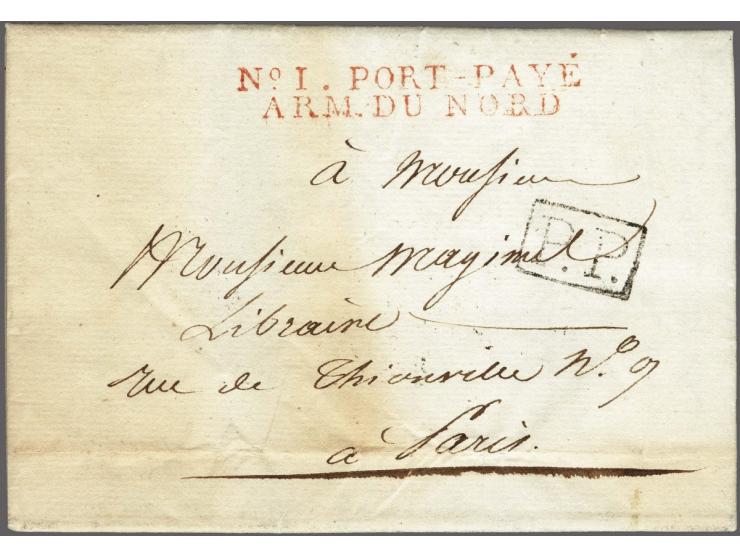 No. I. PORT-PAYÉ
ARM. DU NORD
à Monsieur
Monsieur Magimel
P.P.
Libraire
rue de Thionville No. 9
à Paris.